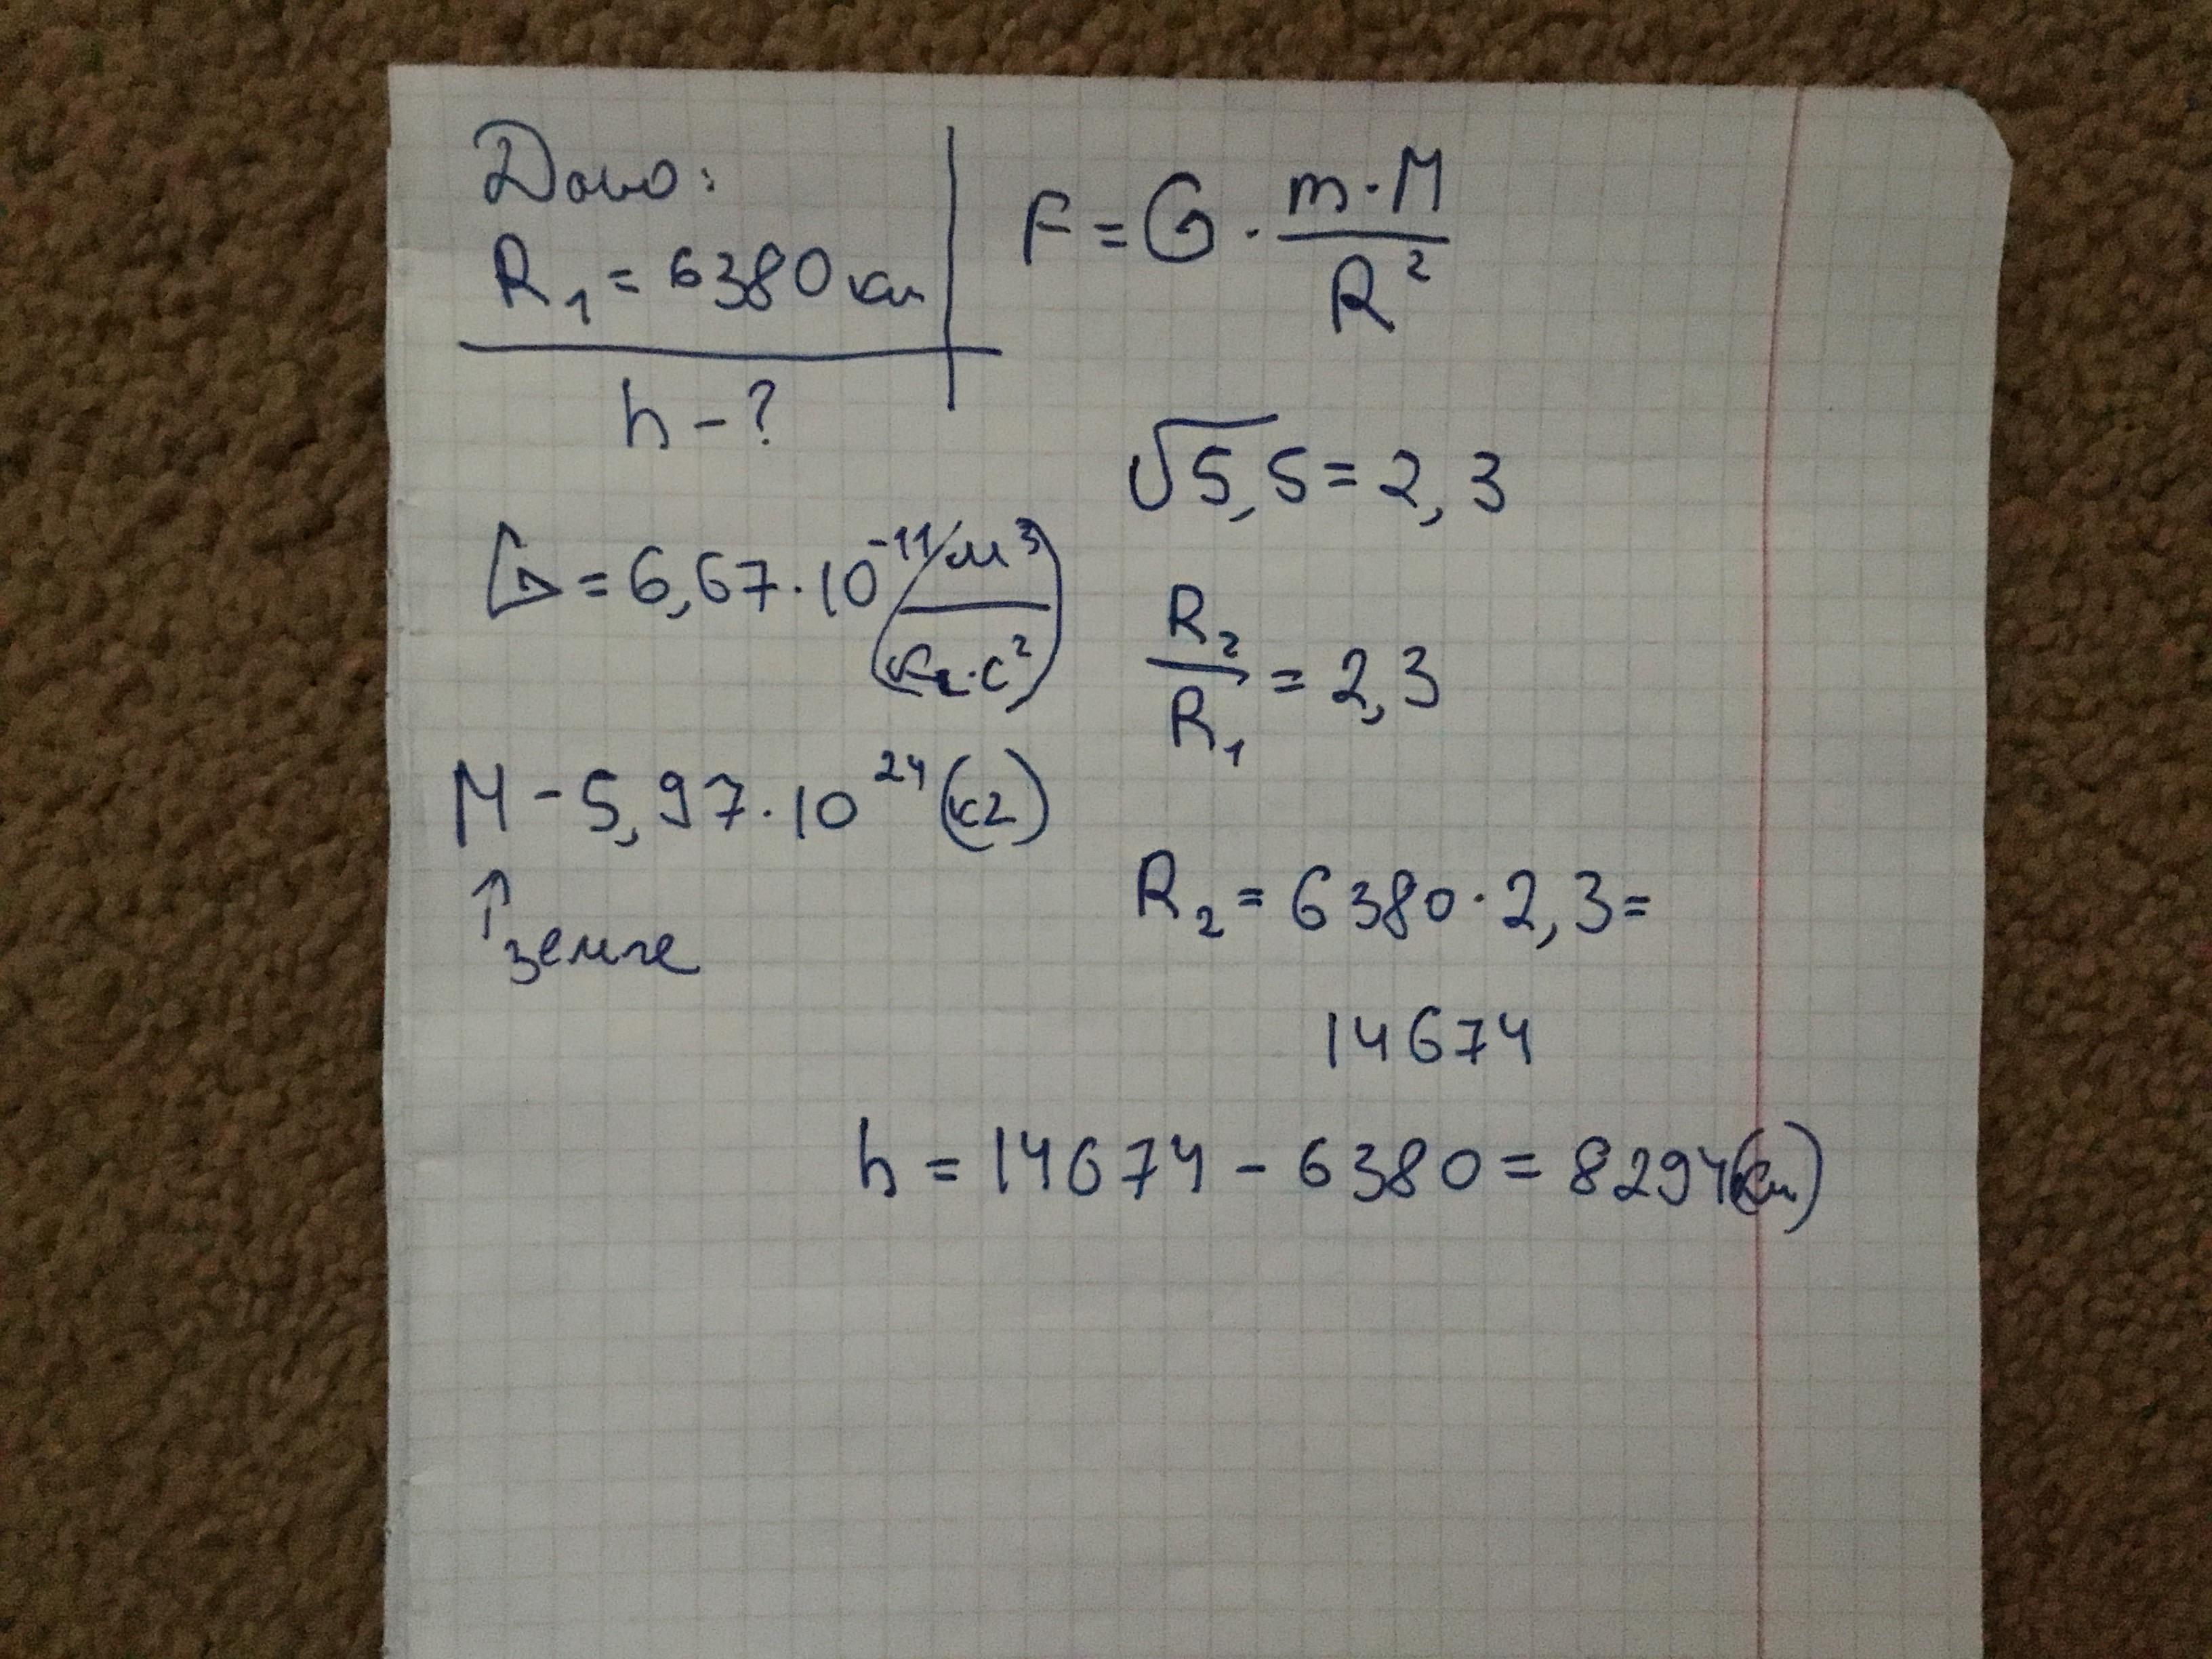 Дано:
R₁ = 6380 км
h - ?
G = 6,67 · 10⁻¹¹ (м³ / кг · с²)
M - 5,97 · 10²⁴ (кг)
↑ земле
F = G · m · M / R²
√5,5 = 2,3
R₂ / R₁ = 2,3
R₂ = 6380 · 2,3 =
14674
h = 14674 - 6380 = 8294 (км)